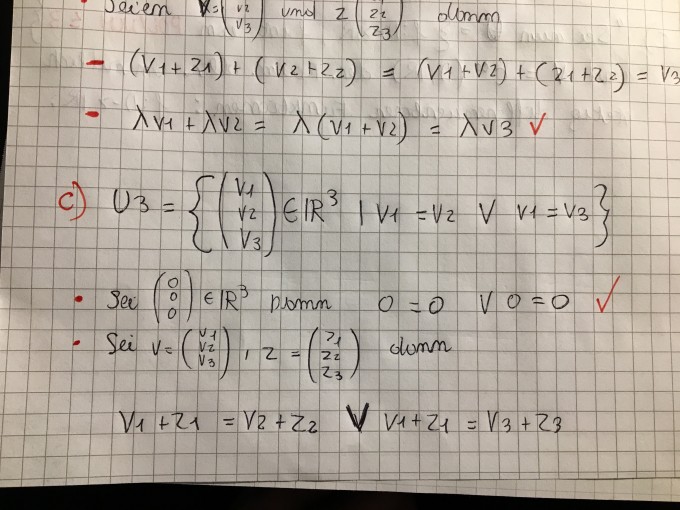 Seien v=(v2 v3) und z (z2 z3) dann
- (v1+z1)+(v2+z2) = (v1+v2)+(z1+z2) = v3
- λv1+λv2 = λ(v1+v2) = λv3 ✓
c) U3 = {(v1 v2 v3) ∈ ℝ³ | v1 = v2 ∨ v1 = v3}
• Sei (0 0 0) ∈ ℝ³ dann 0=0 ∨ 0=0 ✓
• Sei v=(v1 v2 v3), z=(z1 z2 z3) dann
v1+z1 = v2+z2 ∨ v1+z1 = v3+z3